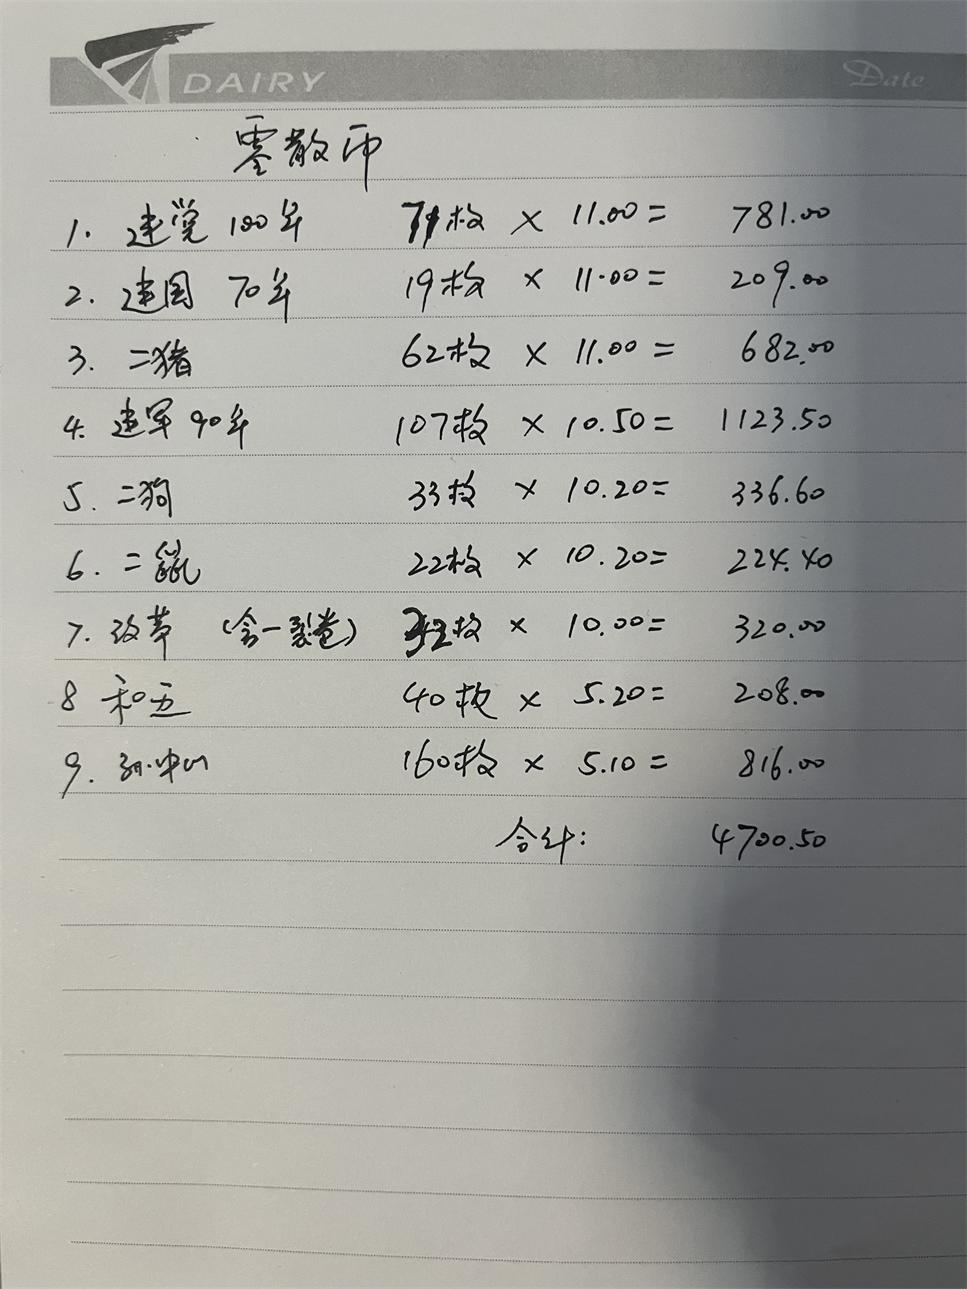 DAIRY Date
零散币
1. 建党100年 71枚 × 11.00 = 781.00
2. 建国 70年 19枚 × 11.00 = 209.00
3. 二猪 62枚 × 11.00 = 682.00
4. 建军90年 107枚 × 10.50 = 1123.50
5. 二狗 33枚 × 10.20 = 336.60
6. 二鼠 22枚 × 10.20 = 224.40
7. 改革 (含一裂卷) 32枚 × 10.00 = 320.00
8 和五 40枚 × 5.20 = 208.00
9. 孙中山 160枚 × 5.10 = 816.00
合计: 4700.50